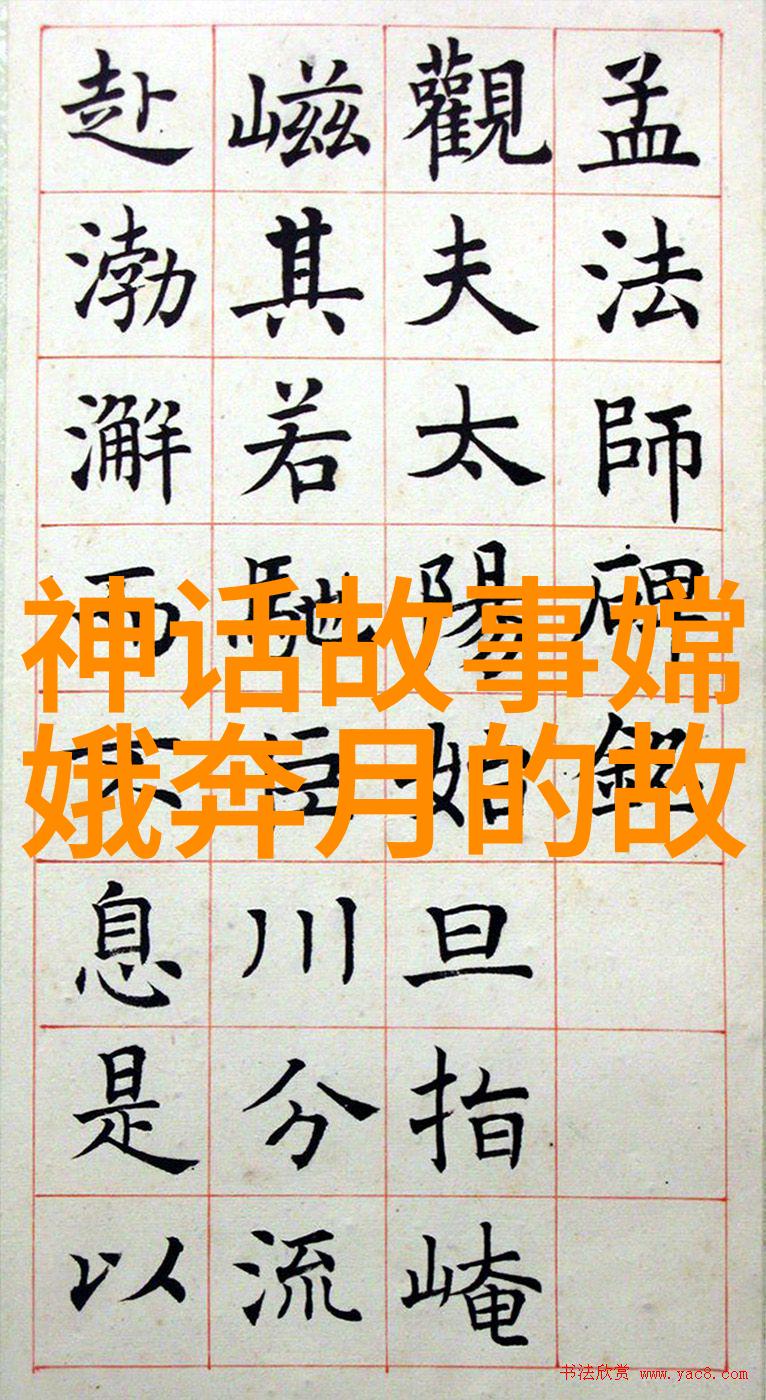 孟法師碑銘
觀夫太陽始旦指崦
嵫其若馳巨川分流
赴渤澥而不息是以
神话故事嫦
娥奔月的故
书法欣赏 www.yac8.com